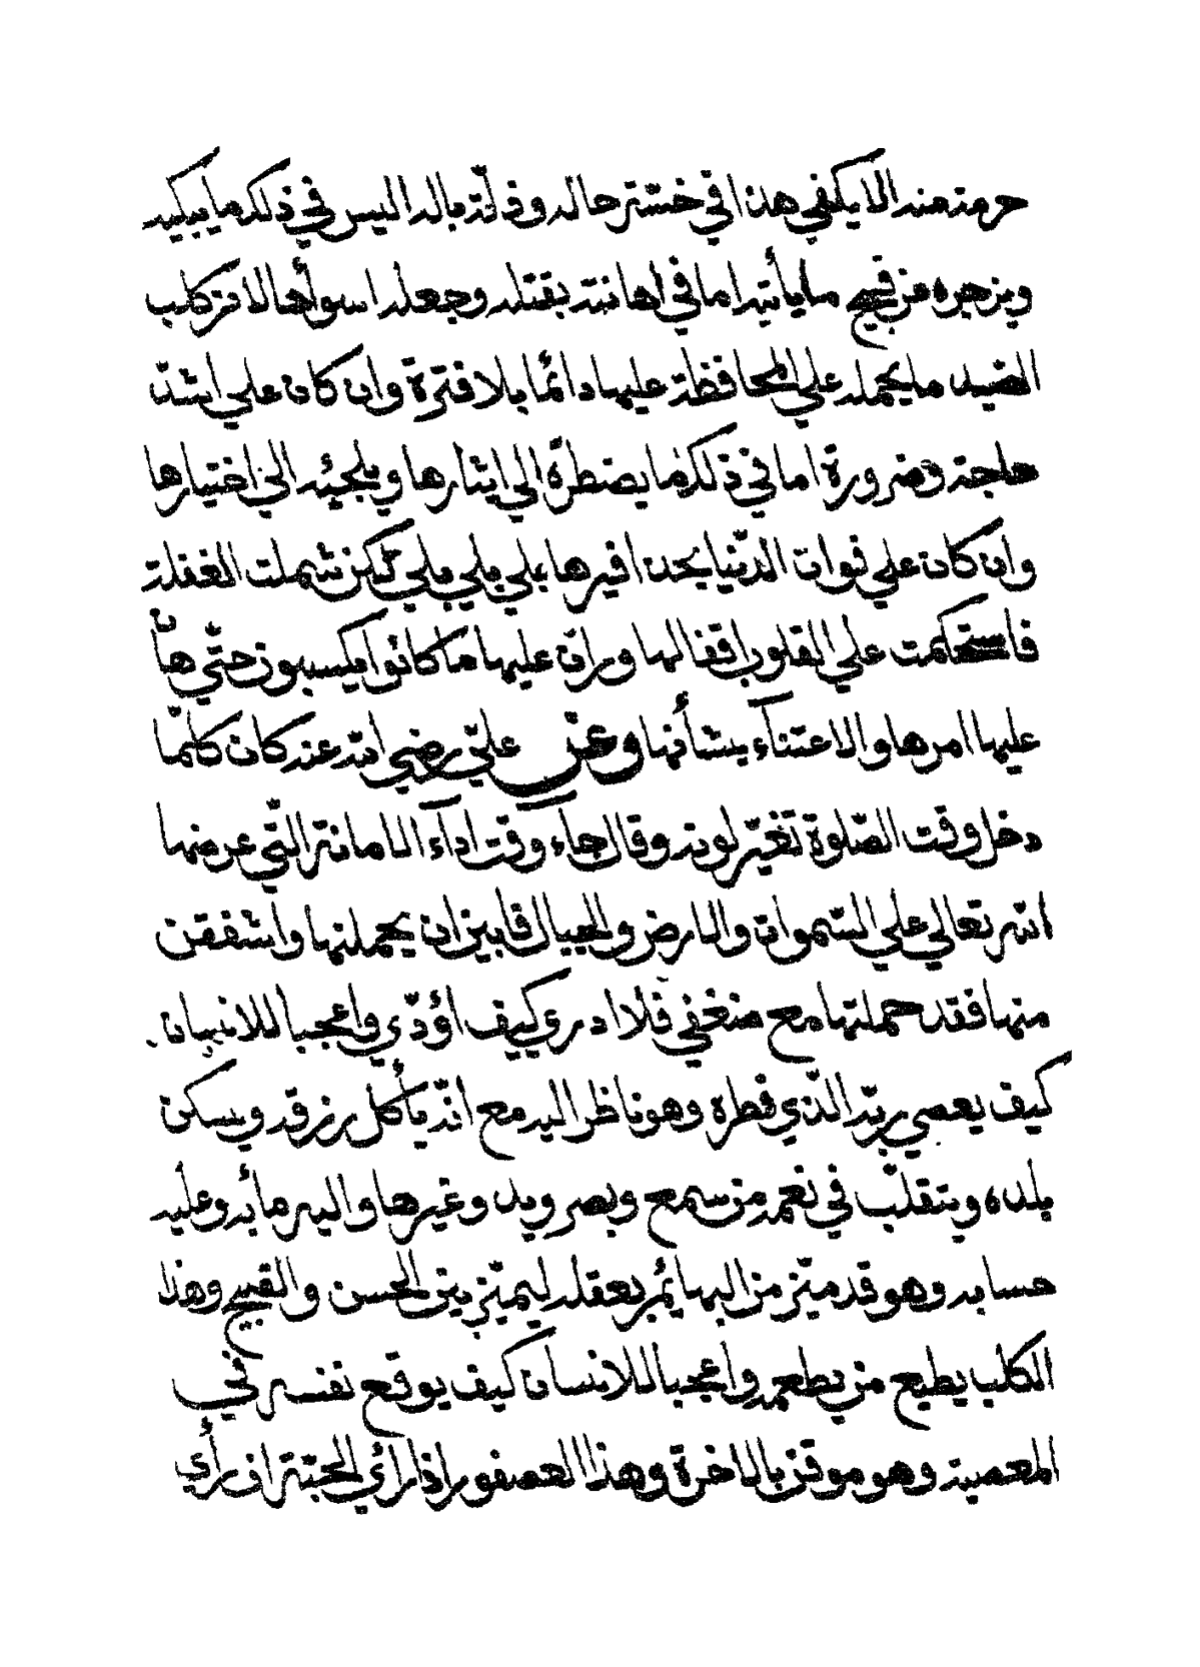 حرمة منه الا يكفي هذا في خسّة حاله وذلّة باله اليس في ذلك ما يبكيه
ويزجره من قبيح ما يأتيه اما في اهانته بقتله وجعله اسوأ حالا من كلب
الصيد ما يحمله علي المحافظة عليها دائما بلا فترة وان كان علي اشدّ
حاجة وضرورة اما في ذلك ما يضطرّه الي ايثارها ويلجيئه الي اختيارها
وان كان علي فوات الدّنيا بحذافيرها بلي بلي بلي لكن شملت الغفلة
فاستحكمت علي القلوب اقفالها وران عليها ما كانوا يكسبون حتّي هان
عليها امرها والاعتناء بشأنها وعن عليّ رضي الله عنه كان كلّما
دخل وقت الصّلوة تغيّر لونه وقال جآء وقت ادآء الامانة الّتي عرضها
الله تعالي علي السّموات والارض والجبال فابين ان يحملنها واشفقن
منها فقد حملتها مع ضعفي فلا ادري كيف اؤدّي واعجبا للانسان
كيف يعصي ربّه الّذي فطره وهو ناظر اليه مع انّه يأكل رزقه ويسكن
بلده ويتقلّب في نعمه من سمع وبصر ويد وغيرها واليه مأبه وعليه
حسابه وهو قد ميّز من البهائم بعقله ليميّز بين الحسن والقبيح وهذا
الكلب يطيع من يطعمه واعجبا للانسان كيف يوقع نفسه في
المعصية وهو موقن بالاخرة وهذا العصفور اذا رأي الحبّة ان رأي